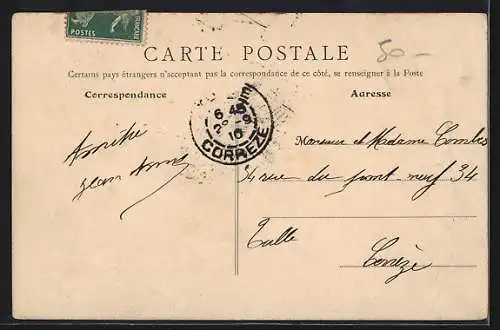 FRANÇAISE
POSTES
CARTE POSTALE
50 -
Certains pays étrangers n'acceptent pas la correspondance de ce côté, se renseigner à la Poste
Correspondance
Adresse
6 45
28 - 9
10
CORREZE
Amitié
Jean
Monsieur et Madame Combes
34 rue du pont-neuf 34
Tulle
Corrèze